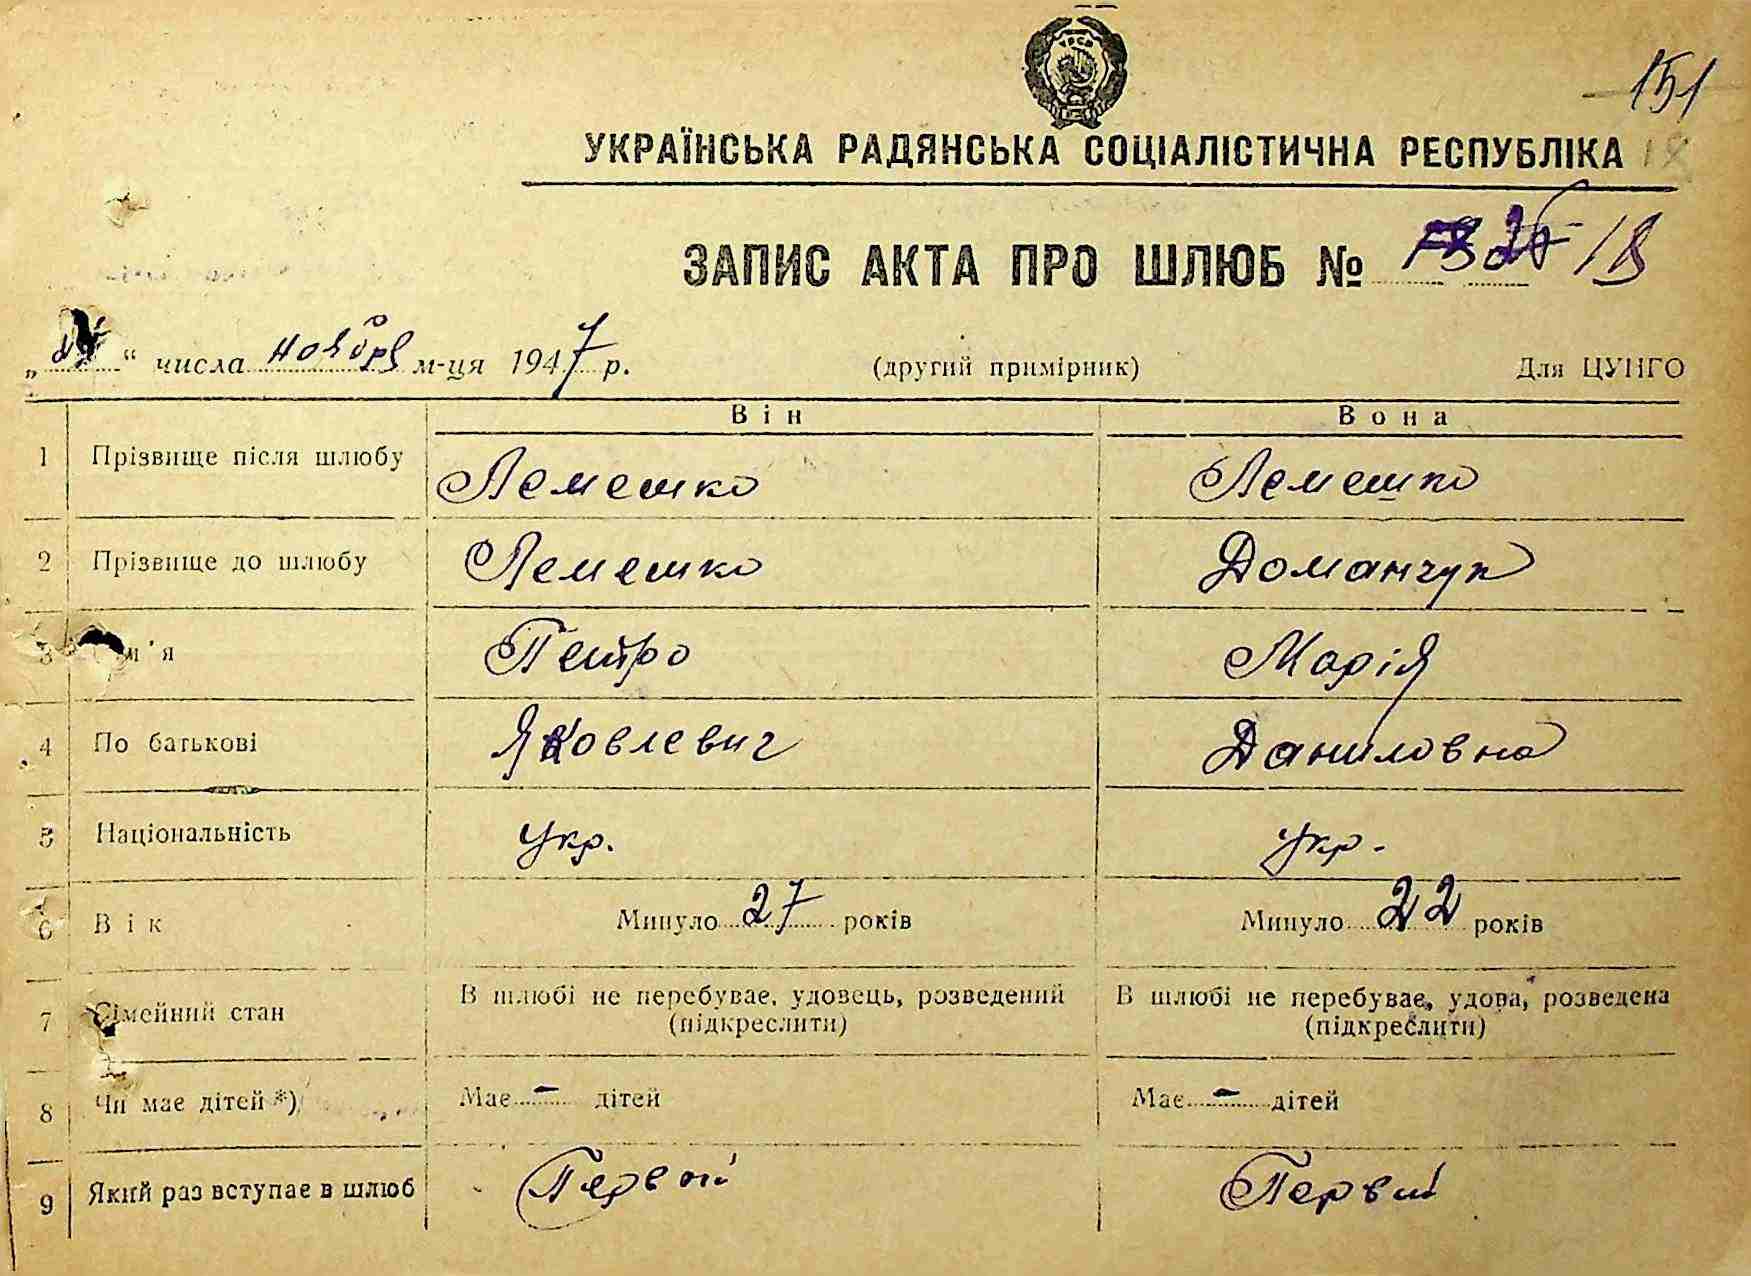 151
УКРАЇНСЬКА РАДЯНСЬКА СОЦІАЛІСТИЧНА РЕСПУБЛІКА
ЗАПИС АКТА ПРО ШЛЮБ № 18
„ “ числа ноября м-ця 1947 р. (другий примірник) Для ЦУНГО
Він Вона
1 Прізвище після шлюбу Лемешко Лемешко
2 Прізвище до шлюбу Лемешко Доманчук
3 м'я Петро Марія
4 По батькові Яковлевич Даниловна
5 Національність укр. укр.
6 Вік Минуло 27 років Минуло 22 років
7 Сімейний стан В шлюбі не перебуває, удовець, розведений В шлюбі не перебуває, удова, розведена
(підкреслити) (підкреслити)
8 Чи має дітей *) Має - дітей Має - дітей
9 Який раз вступає в шлюб Первий Первий